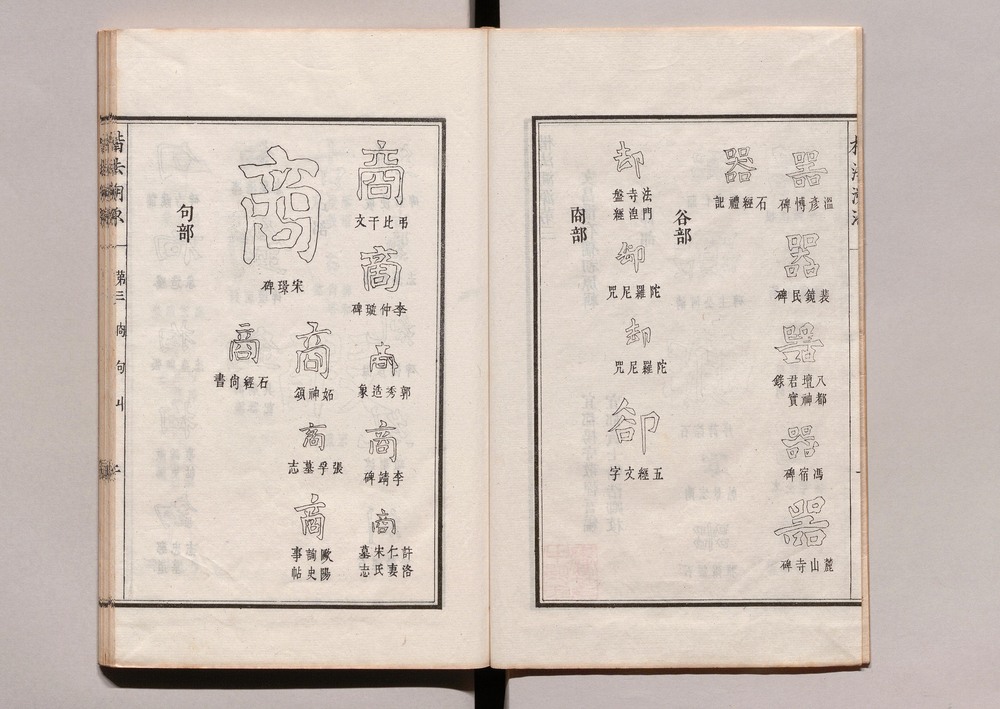 器
溫彥博碑
器
裴鏡民碑
器
八都壇神君實錄
器
馮宿碑
器
麓山寺碑
器
石經禮記
谷部
却
法門寺湼盤經
卻
陀羅尼咒
却
陀羅尼咒
卻
五經文字
㕯部
商
弔比干文
商
李仲璇碑
商
郭秀造象
商
李靖碑
商
許洛仁妻宋氏墓志
商
宋璟碑
商
妬神頌
商
張孚墓志
商
歐陽詢史事帖
商
石經尚書
句部
第三 㕯 句 丩